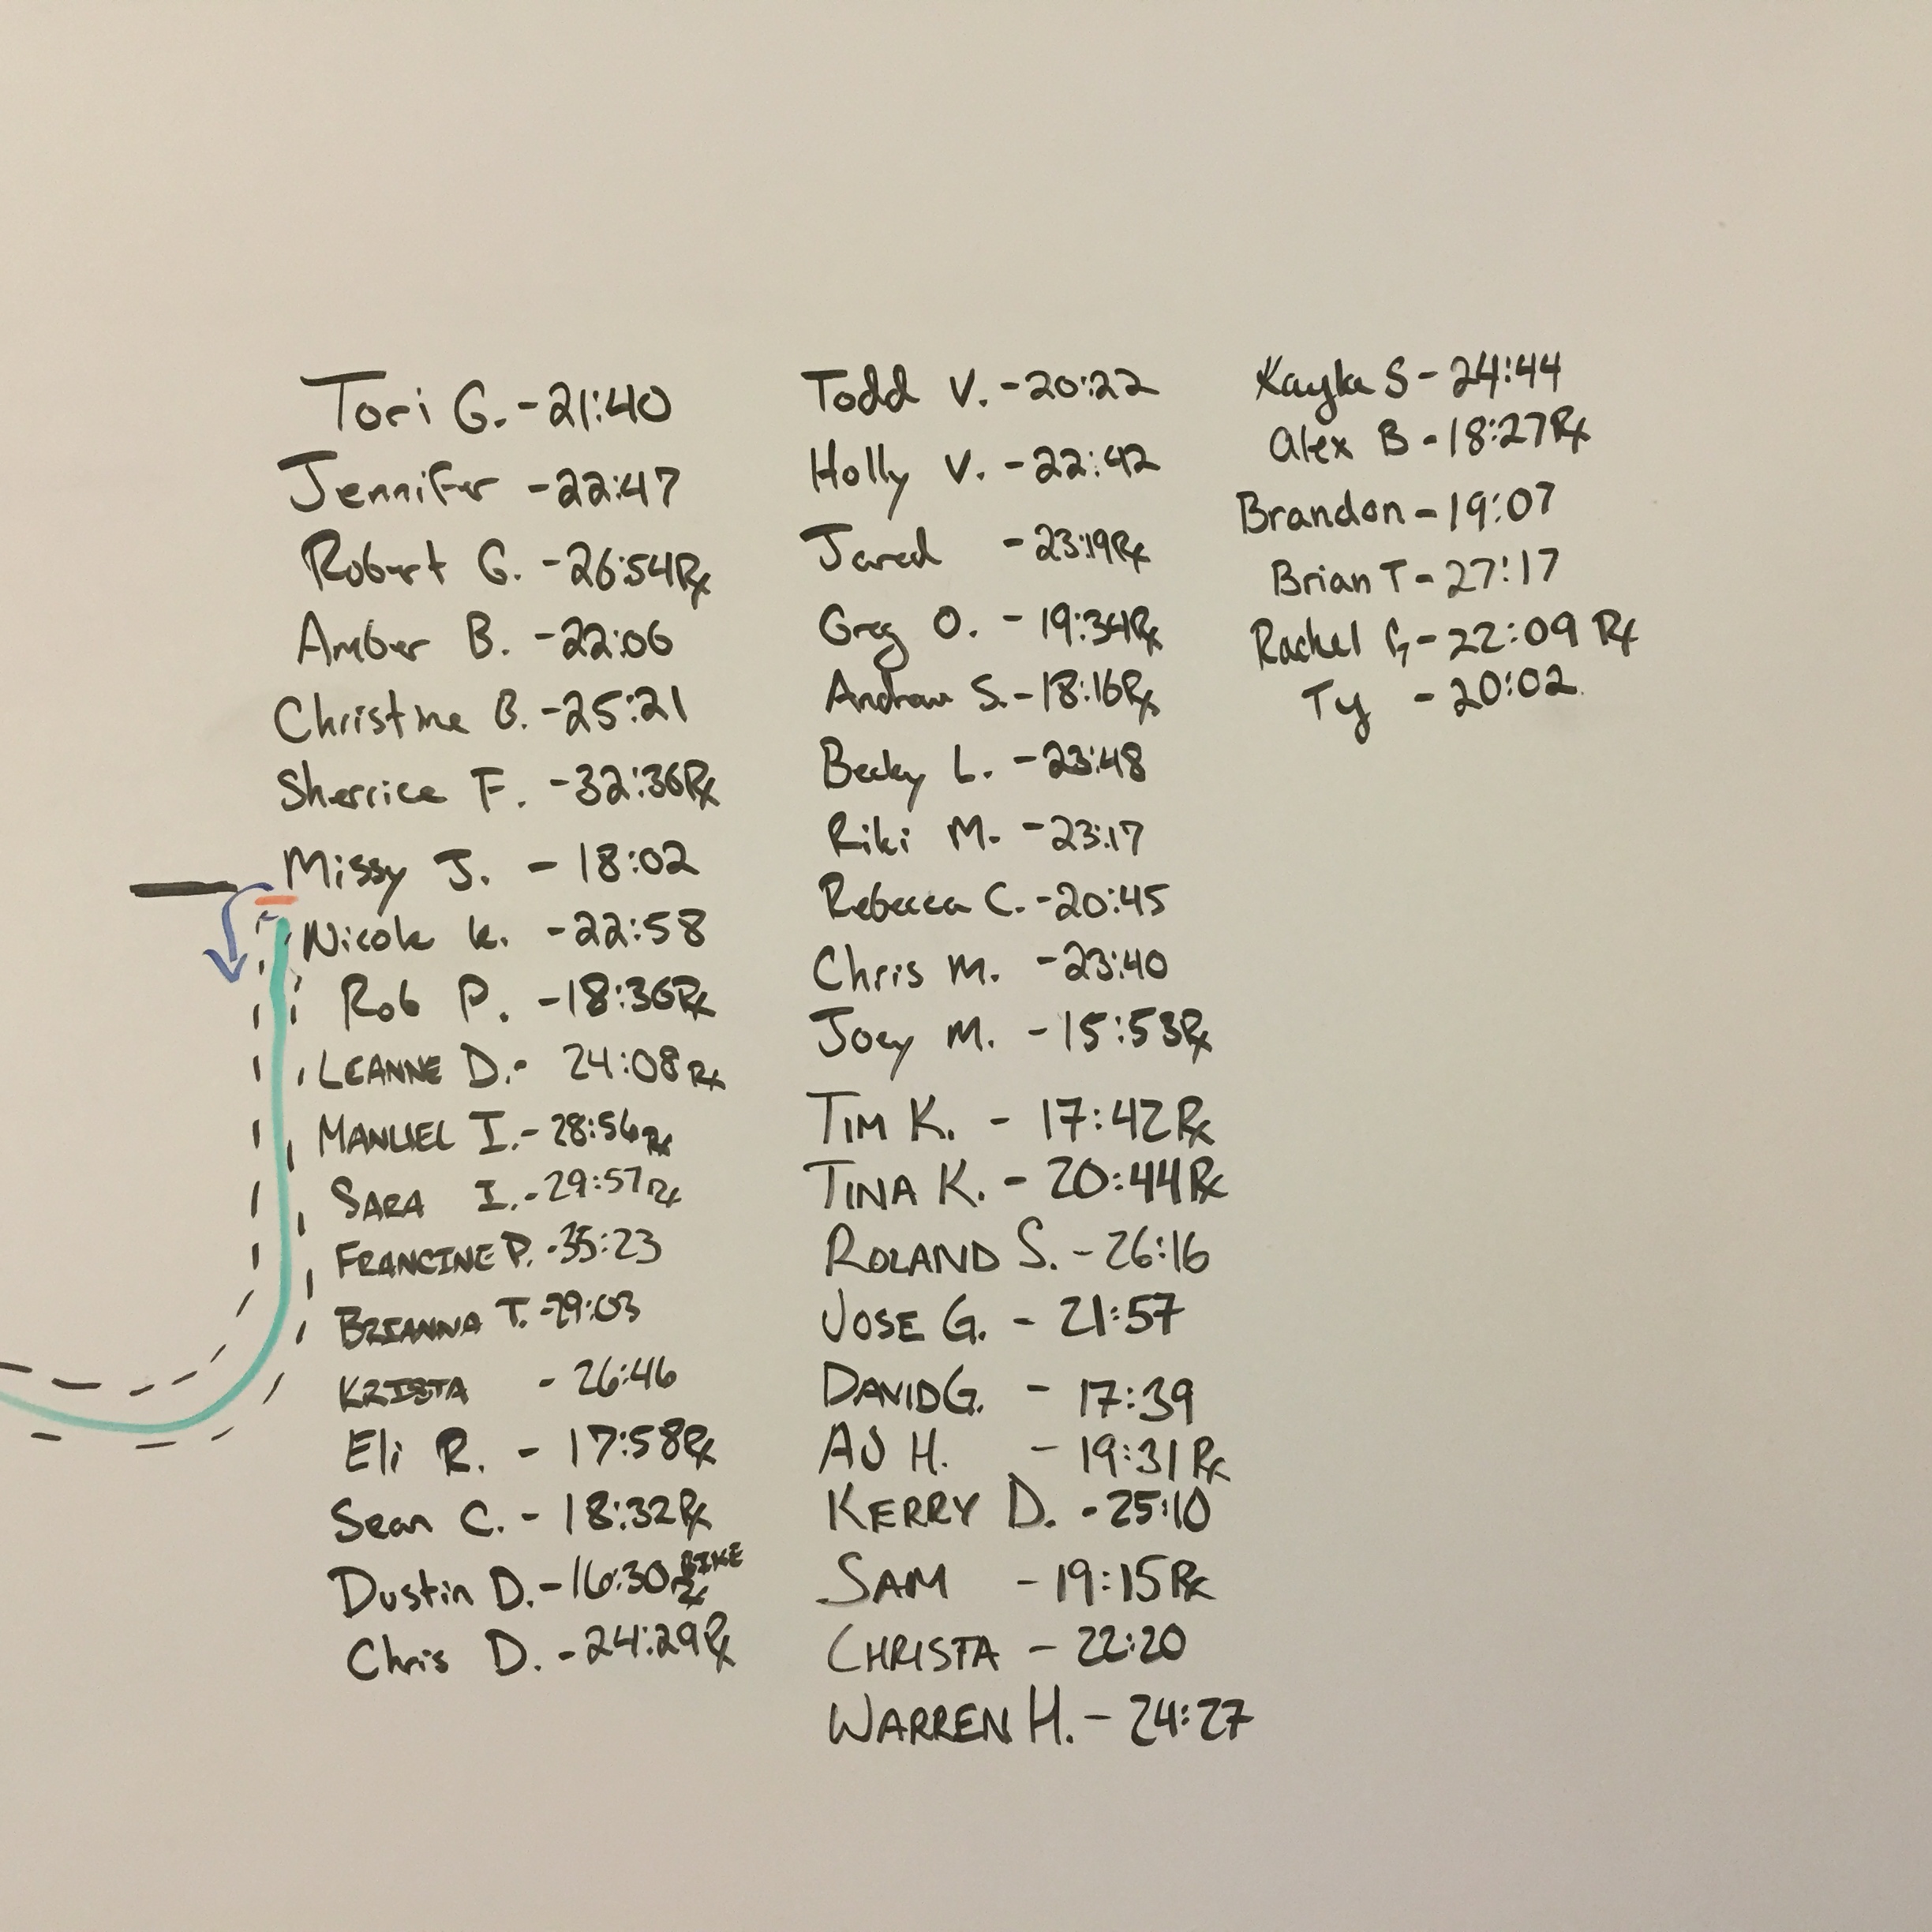 Tori G. - 21:40
Jennifer - 22:47
Robert G. - 26:54 Rx
Amber B. - 22:06
Christine B. - 25:21
Sherrice F. - 32:36 Rx
Missy J. - 18:02
Nicole K. - 22:58
Rob P. - 18:36 Rx
LEANNE D. - 24:08 Rx
MANUEL I. - 28:56 Rx
SARA I. - 29:57 Rx
FRANCINE P. - 35:23
BRIANNA T. - 29:03
KRISTA - 26:46
Eli R. - 17:58 Rx
Sean C. - 18:32 Rx
Dustin D. - 16:30 BIKE Rx
Chris D. - 24:29 Rx
Todd V. - 20:22
Holly V. - 22:42
Jared - 23:19 Rx
Greg O. - 19:34 Rx
Andrew S. - 18:16 Rx
Becky L. - 23:48
Riki M. - 23:17
Rebecca C. - 20:45
Chris M. - 23:40
Joey M. - 15:53 Rx
TIM K. - 17:42 Rx
TINA K. - 20:44 Rx
ROLAND S. - 26:16
JOSE G. - 21:57
DAVID G. - 17:39
AJ H. - 19:31 Rx
KERRY D. - 25:10
SAM - 19:15 Rx
CHRISTA - 22:20
WARREN H. - 24:27
Kayla S - 24:44
Alex B - 18:27 Rx
Brandon - 19:07
Brian T - 27:17
Rachel G - 22:09 Rx
Ty - 20:02